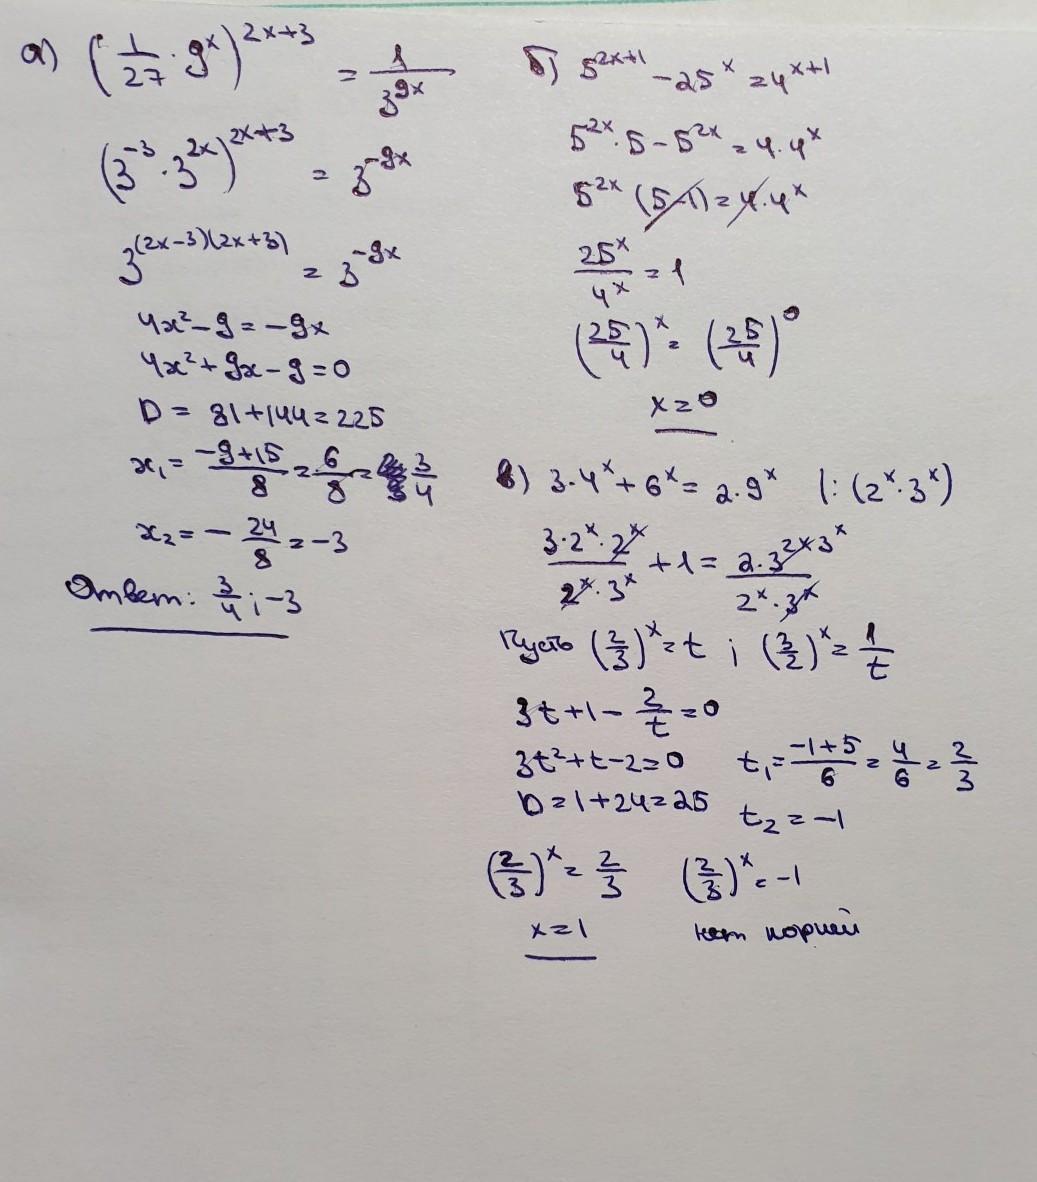 а) (1/27 · 9^x)^(2x+3) = 1/3^(9x)
(3^(-3) · 3^(2x))^(2x+3) = 3^(-9x)
3^((2x-3)(2x+3)) = 3^(-9x)
4x² - 9 = -9x
4x² + 9x - 9 = 0
D = 81 + 144 = 225
x₁ = (-9+15)/8 = 6/8 = 3/4
x₂ = - 24/8 = -3
Ответ: 3/4 ; -3
б) 5^(2x+1) - 25^x = 4^(x+1)
5^(2x) · 5 - 5^(2x) = 4 · 4^x
5^(2x) (5-1) = 4 · 4^x
25^x/4^x = 1
(25/4)^x = (25/4)^0
x = 0
в) 3 · 4^x + 6^x = 2 · 9^x |: (2^x · 3^x)
(3 · 2^x · 2^x)/(2^x · 3^x) + 1 = (2 · 3^(2x) 3^x)/(2^x · 3^x)
Пусть (2/3)^x = t ; (3/2)^x = 1/t
3t + 1 - 2/t = 0
3t² + t - 2 = 0 t₁ = (-1+5)/6 = 4/6 = 2/3
D = 1 + 24 = 25 t₂ = -1
(2/3)^x = 2/3 (2/3)^x = -1
x = 1 нет корней